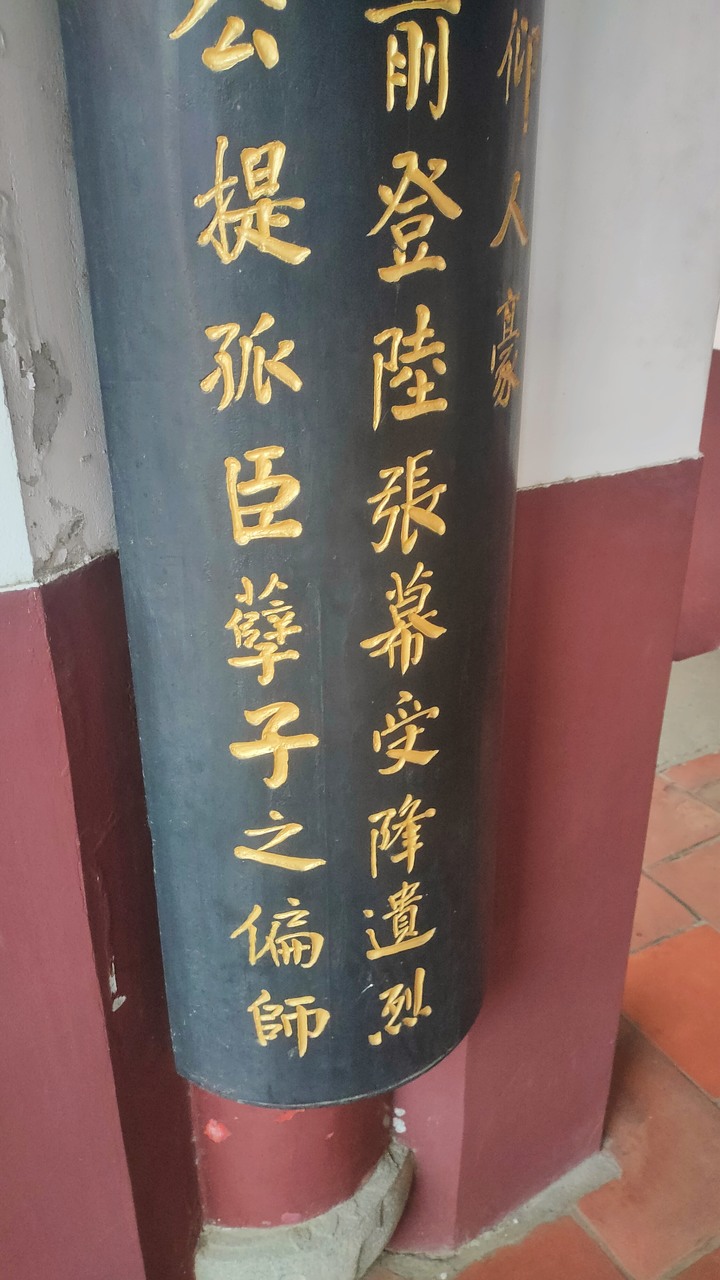 仰人豪
前登陸張幕受降遺烈
公提孤臣孽子之偏師